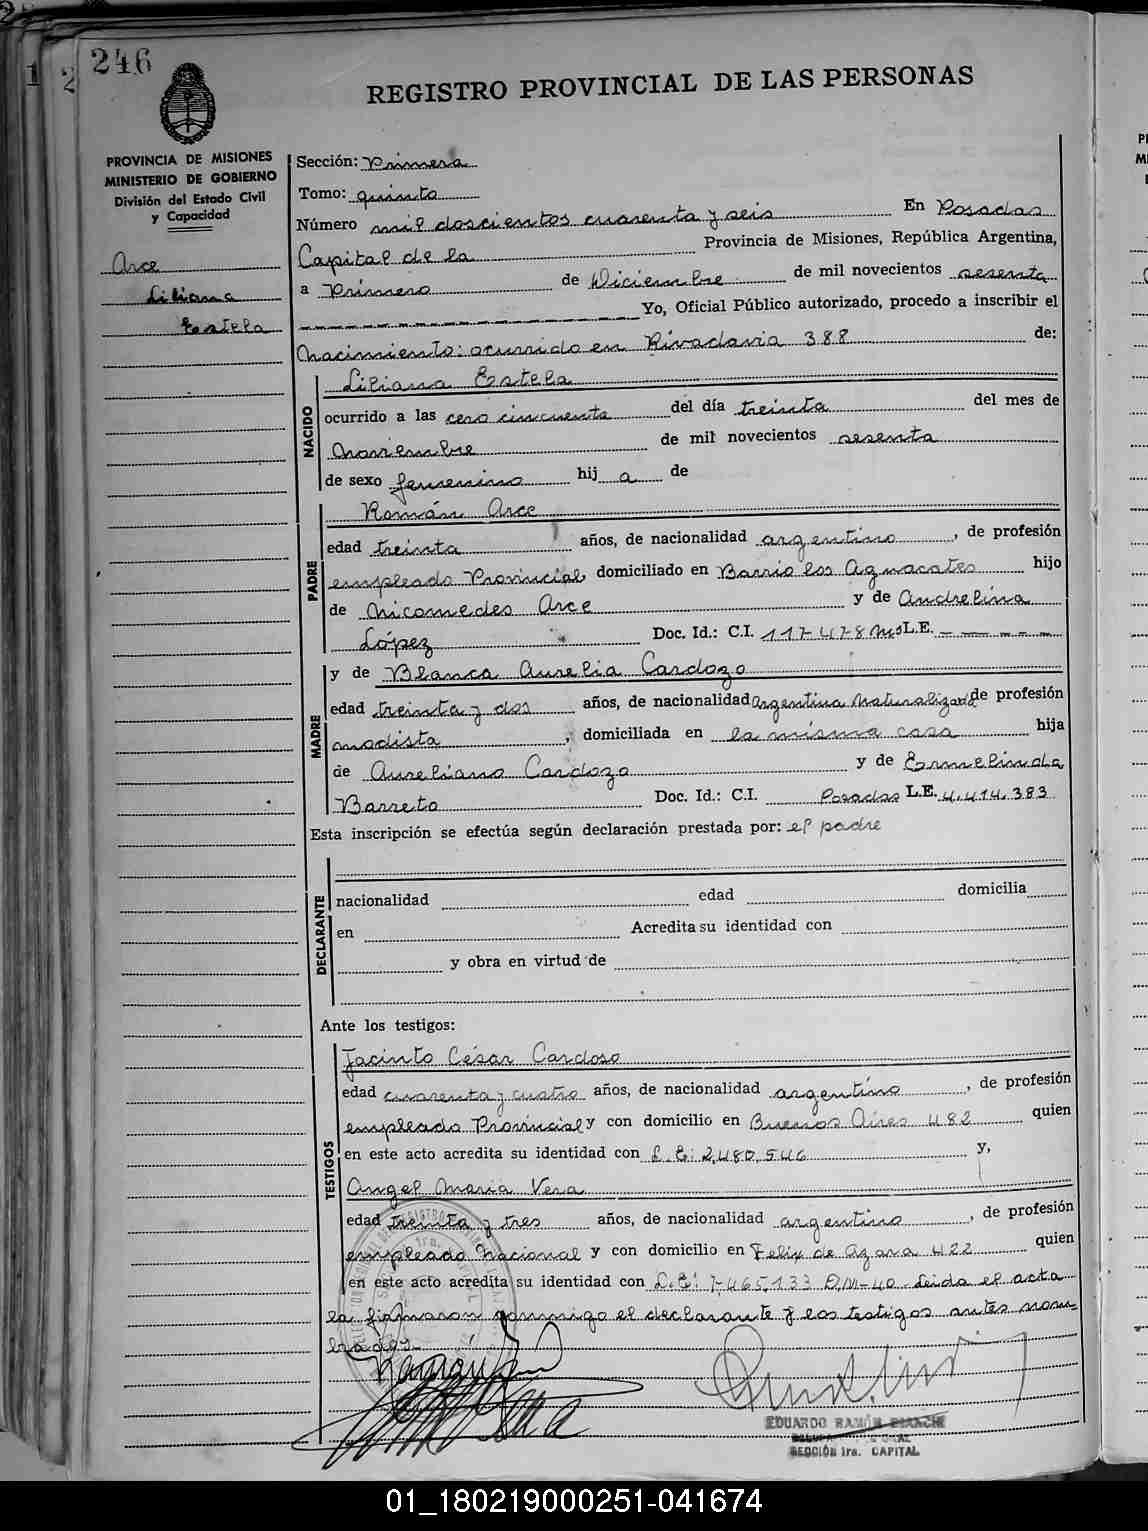 246
REGISTRO PROVINCIAL DE LAS PERSONAS
PROVINCIA DE MISIONES
MINISTERIO DE GOBIERNO
División del Estado Civil
y Capacidad
Arce
Liliana
Estela
Sección: Primera
Tomo: quinto
Número mil doscientos cuarenta y seis En Posadas
Capital de la Provincia de Misiones, República Argentina,
a Primero de Diciembre de mil novecientos sesenta
Yo, Oficial Público autorizado, procedo a inscribir el
Nacimiento: ocurrido en Rivadavia 388 de:
NACIDO
Liliana Estela
ocurrido a las cero cincuenta del día treinta del mes de
Noviembre de mil novecientos sesenta
de sexo femenino hij a de
PADRE
Román Arce
edad treinta años, de nacionalidad argentino, de profesión
empleado Provincial, domiciliado en Barrio los Aguacates hijo
de Nicomedes Arce y de Andrelina
López Doc. Id.: C.I. 117478 Mis L.E.
MADRE
y de Blanca Aurelia Cardozo
edad treinta y dos años, de nacionalidad Argentina Naturalizada de profesión
modista, domiciliada en la misma casa hija
de Aureliano Cardozo y de Ermelinda
Barreto Doc. Id.: C.I. Posadas L.E. 4.414.383
Esta inscripción se efectúa según declaración prestada por: el padre
DECLARANTE
nacionalidad edad domicilia
en Acredita su identidad con
y obra en virtud de
Ante los testigos:
TESTIGOS
Jacinto César Cardoso
edad cuarenta y cuatro años, de nacionalidad argentino, de profesión
empleado Provincial y con domicilio en Buenos Aires 482 quien
en este acto acredita su identidad con L.E: 2.480.546 y,
Angel Maria Vera
edad treinta y tres años, de nacionalidad argentino, de profesión
empleado Nacional y con domicilio en Felix de Azara 422 quien
en este acto acredita su identidad con L.E: 7.465.133 D.M-40. Leida el acta
la firmaron conmigo el declarante y los testigos antes nom-
brados.
EDUARDO RAMÓN BIANCHI
SECCIÓN 1ra. CAPITAL
01_180219000251-041674